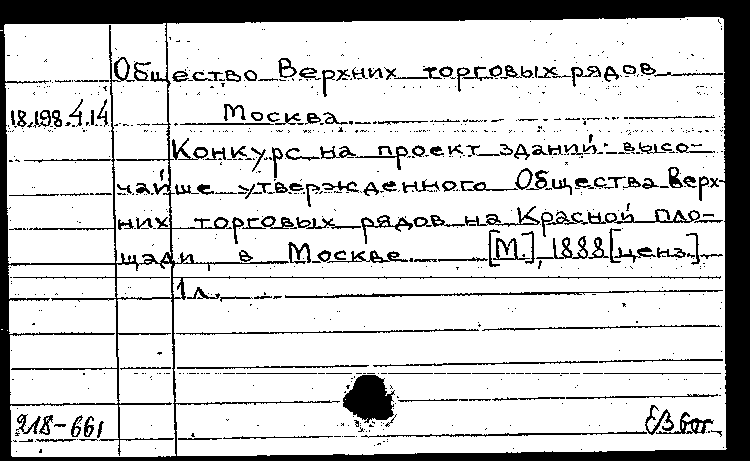 Общество Верхних торговых рядов.
18.198.4.14 Москва.
Конкурс на проект зданий высо-
чайше утвержденного Общества Верх-
них торговых рядов на Красной пло-
щади, в Москве. [М.], 1888 [ценз.].
1 л.
218-661